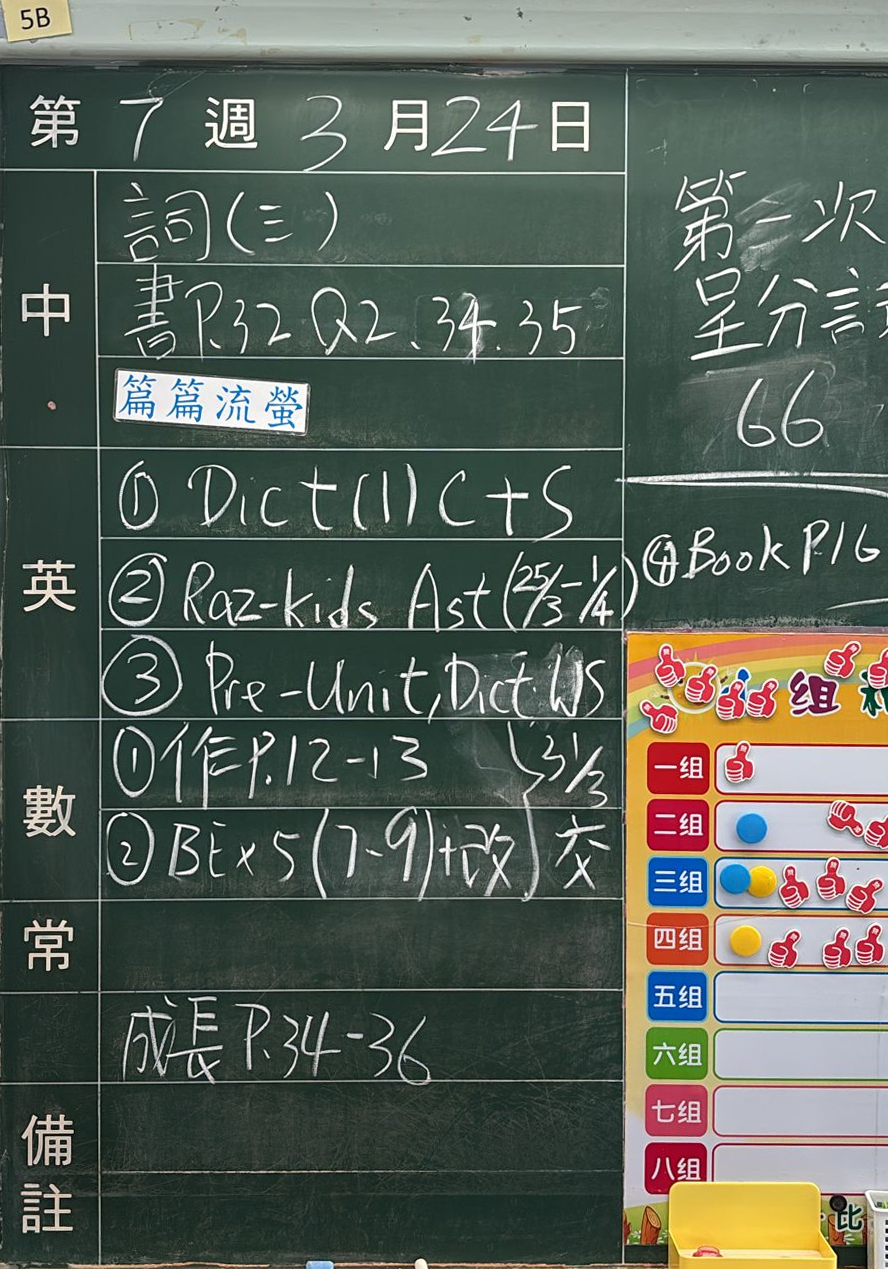 5B
第 7 週 3 月 24 日
中
詞(三)
書P.32 Q2、34、35
篇篇流螢
英
① Dict (1) C+S
② Raz-kids Ast (25/3-1/4)
③ Pre-Unit, Dict WS
數
①作P.12-13 } 31/3
② BEx5 (7-9)+改 } 交
常
成長 P.34-36
備註
第一次
呈分試
66
④Book P.16
組
一组
二组
三组
四组
五组
六组
七组
八组
比